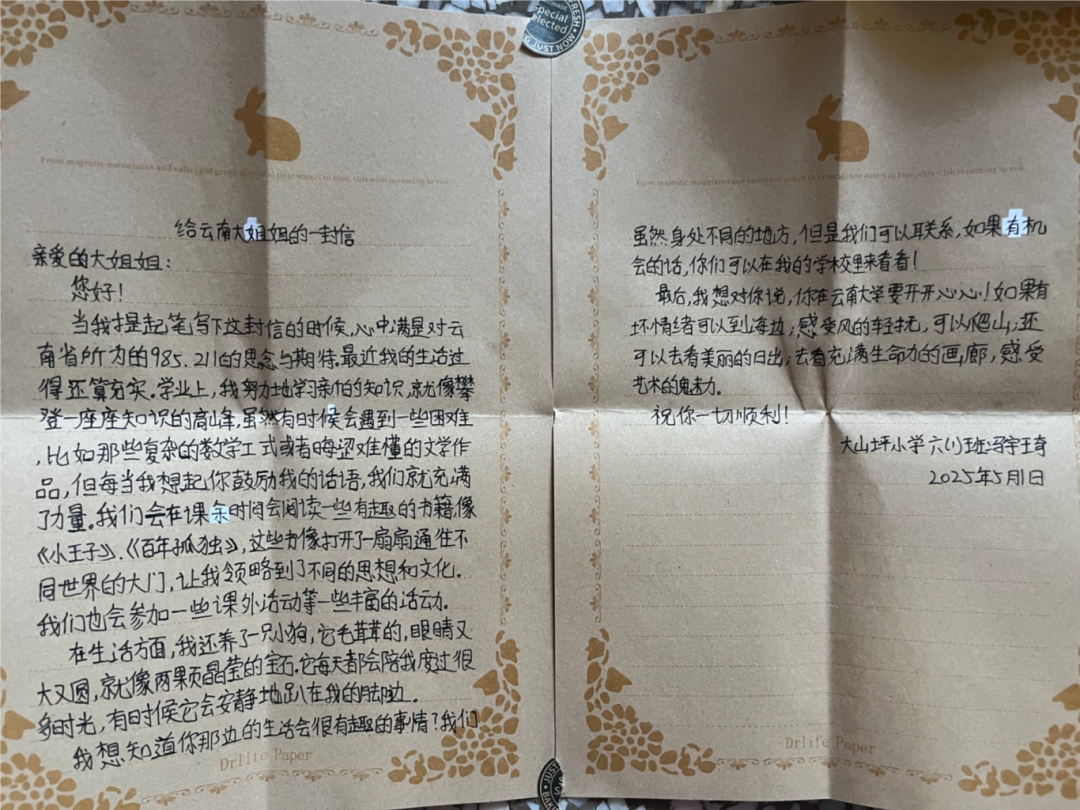 FRESH
Special
Selected
JUST NOW
From majestic mountains and valleys of green to crystal clear waters to blue, this wish is coming to you.
给云南大姐姐的一封信
亲爱的大姐姐：
您好！
当我提起笔写下这封信的时候，心中满是对云
南省所为的985.211的思念与期待.最近我的生活过
得还算充实.学业上，我努力地学习新的知识.就像攀
登一座座知识的高峰，虽然有时候会遇到一些困难
，比如那些复杂的数学工式或者晦涩难懂的文学作
品，但每当我想起你鼓励我的话语，我们就充满
了力量。我们会在课余时间会阅读一些有趣的书籍像
《小王子》.《百年孤独》，这些书像打开了一扇扇通往不
同世界的大门，让我领略到了不同的思想和文化.
我们也会参加一些课外活动等一些丰富的活动.
在生活方面，我还养了一只小狗，它毛茸茸的，眼睛又
大又圆，就像两颗晶莹的宝石.它每天都会陪我度过很
多时光，有时候它会安静地趴在我的脚边.
我想知道你那边的生活会很有趣的事情？我们
Drlife Paper
From majestic mountains and valleys of green to crystal clear waters to blue, this wish is coming to you.
虽然身处不同的地方，但是我们可以联系，如果有机
会的话，你们可以在我的学校里来看看！
最后，我想对你说，你在云南大学要开开心心！如果有
坏情绪可以到海边；感受风的轻抚，可以爬山；还
可以去看美丽的日出；去看充满生命力的画廊，感受
艺术的魅力.
祝你一切顺利！
大山坪小学六(1)班:冯宇琦
2025年5月1日
Drlife Paper